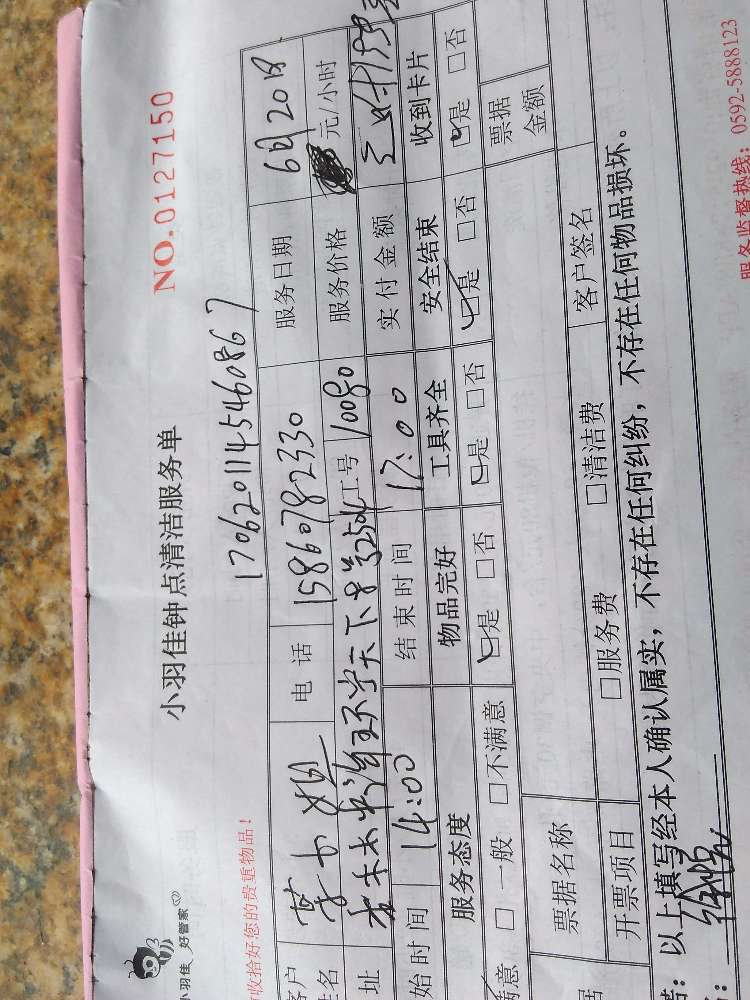 小羽佳 好管家
小羽佳钟点清洁服务单
NO.0127150
收拾好您的贵重物品！
17062011454608​67
客户 小姐 电话 15860782330 服务日期 2018
址 工号 10080 服务价格 元/小时
始时间 14:00 结束时间 17:00 实付金额
服务态度 物品完好 工具齐全 安全结束 收到卡片
满意 □ 一般 □不满意 □是 □否 □是 □否 □是 □否 □是 □否
票据名称 票据金额
开票项目 □服务费 □清洁费 客户签名
：以上填写经本人确认属实，不存在任何纠纷，不存在任何物品损坏。
服务监督热线：0592-5888123